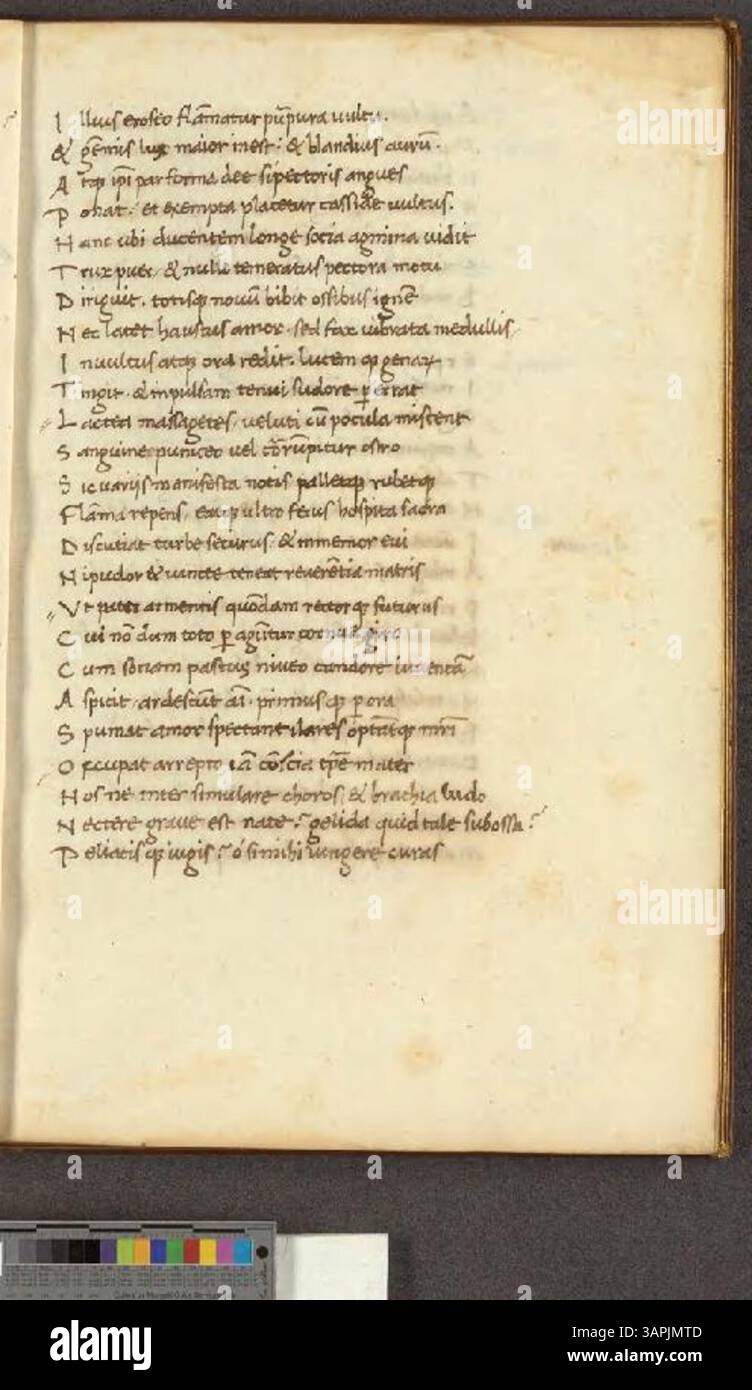 I llius eroseo flāmatur pūpura uultu.
& gēmis lux maior inest: & blandius aurū.
A tqȝ ip̄i par forma dee si pectoris angues
P onat. et exempta placetur casside uultus.
H anc ubi ducentem longe socia agmina uidit
T rux puer. & nullo temeratus pectora motu
D iriguit. totisqȝ nouū bibit ossibus ignē
N ec latet haustus amor. sed fax uibrata medullis
I n uultus atqȝ ora redit. lucem qȝ genaꝝ
T ingit. & impulsam tenui sudore ꝑerrat
L actea massagetes. ueluti cū pocula miscent
S anguine puniceo uel corrūpitur ostro
S ic uariis manifesta notis palletqȝ rubetqȝ
F lāma repens. eatqȝ ultro ferus hospita sacra
D iscutiat turbe securus. & inmemor eui
N i pudor & iuncte teneat reuerētia matris
V t pater armentis quōdam rectorqȝ futurus
C ui nō dum toto ꝑaguntur cornua giro
C um sociam pastus niueo candore iuuentā
A spicit. ardescūt aī. primusqȝ ꝑ ora
S pumat amor spectant ilares optātqȝ
O ccupat arrepto iā cōscia tp̄e mater
H os ne inter simulare choros. & brachia ludo
N ectere graue est nate? gelida quid tale sub ossa?
P eliacis qȝ iugis? ó si mihi iungere curas
alamy
alamy
alamy
Image ID: 3APJMTD
www.alamy.com